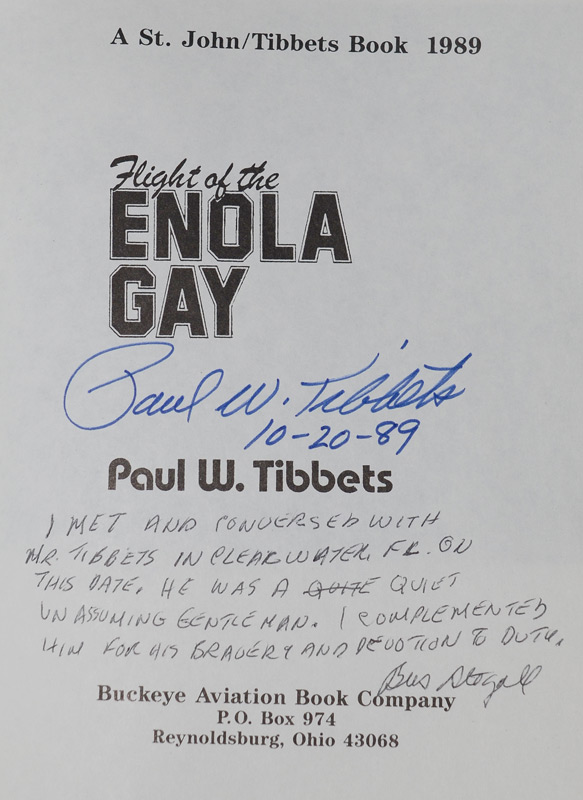 A St. John/Tibbets Book 1989
Flight of the
ENOLA
GAY
Paul W. Tibbets
10-20-89
Paul W. Tibbets
I MET AND CONVERSED WITH
MR. TIBBETS IN CLEARWATER, FL. ON
THIS DATE. HE WAS A QUITE QUIET
UNASSUMING GENTLEMAN. I COMPLEMENTED
HIM FOR HIS BRAVERY AND DEVOTION TO DUTY.
Bus Stogall
Buckeye Aviation Book Company
P.O. Box 974
Reynoldsburg, Ohio 43068